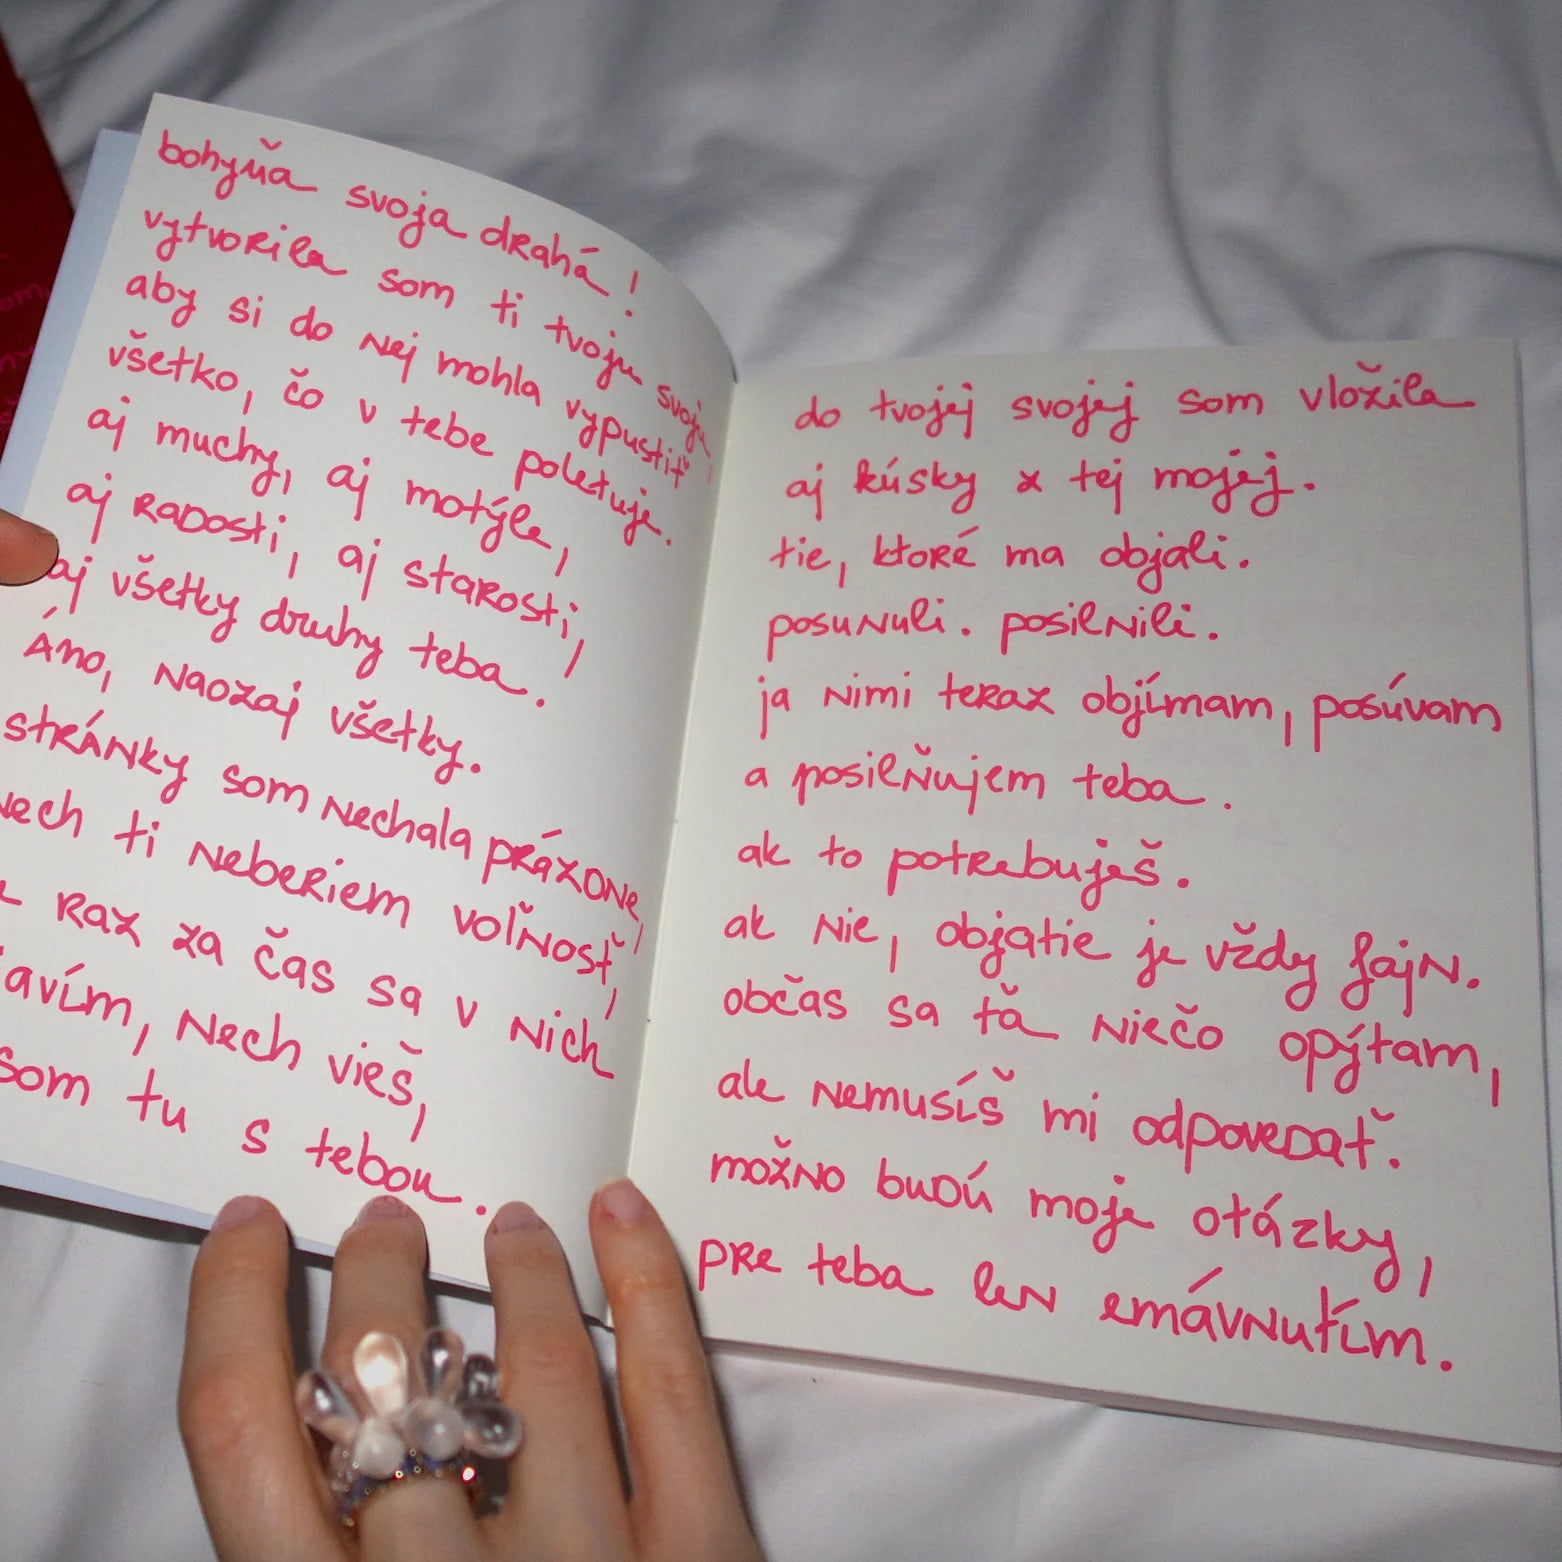 bohyňa svoja drahá!
vytvorila som ti tvoju svoju,
aby si do nej mohla vypustiť
všetko, čo v tebe poletuje.
aj muchy, aj motýle,
aj radosti, aj starosti,
aj všetky druhy teba.
áno, naozaj všetky.
stránky som nechala prázdne,
nech ti neberiem voľnosť,
raz za čas sa v nich
nech vieš,
som tu s tebou.
do tvojej svojej som vložila
aj kúsky z tej mojej.
tie, ktoré ma objali.
posunuli. posilnili.
ja nimi teraz objímam, posúvam
a posilňujem teba.
ak to potrebuješ.
ak nie, objatie je vždy fajn.
občas sa ťa niečo opýtam,
ale nemusíš mi odpovedať.
možno budú moje otázky,
pre teba len